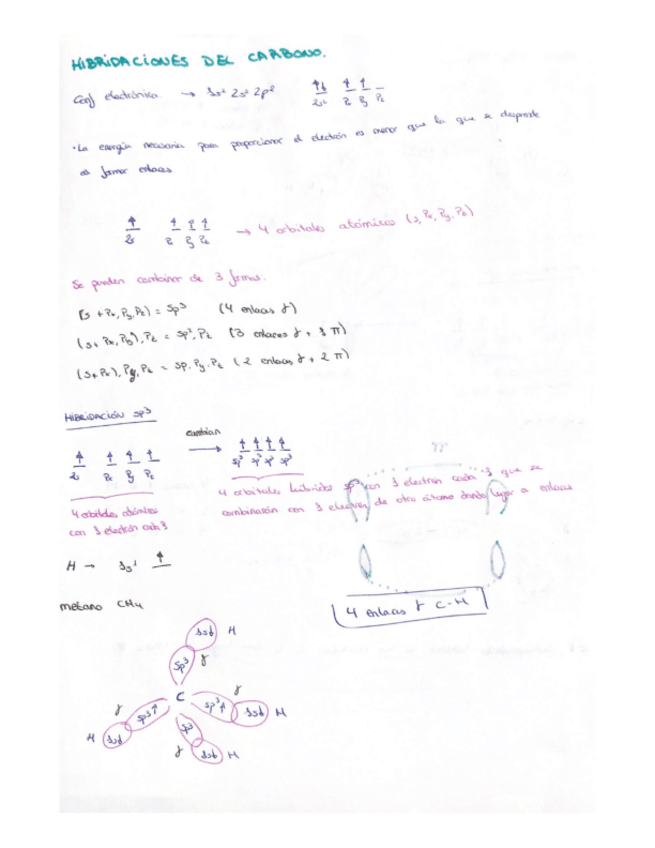 HIBRIDACIONES DEL CARBONO.
Conf electrónica → 1s² 2s² 2p² 2s² Px Py Pz
· La energía necesaria para proporcionar el electrón es menor que la que se desprende
al formar enlaces
2s Px Py Pz → 4 orbitales atómicos (s, Px, Py, Pz)
Se pueden combinar de 3 formas:
(s + Px, Py, Pz) = sp³ (4 enlaces γ)
(s + Px, Py), Pz = sp², Pz (3 enlaces γ + 1 π)
(s + Px), Py, Pz = sp, Py, Pz (2 enlaces γ + 2 π)
HIBRIDACIÓN sp³
cambian
2s Px Py Pz → sp³ sp³ sp³ sp³
4 orbitales atómicos
con 1 electrón cada 1
4 orbitales híbridos sp³ con 1 electrón cada 1 que se
combinarán con 1 electrón de otro átomo dando lugar a enlaces
H → 1s¹ ↑
4 enlaces γ C-H
metano CH4
1s↓ H
sp³ γ
C
γ sp³↑ sp³↑ γ
H 1s↓ sp³ 1s↓ H
γ 1s↓ H